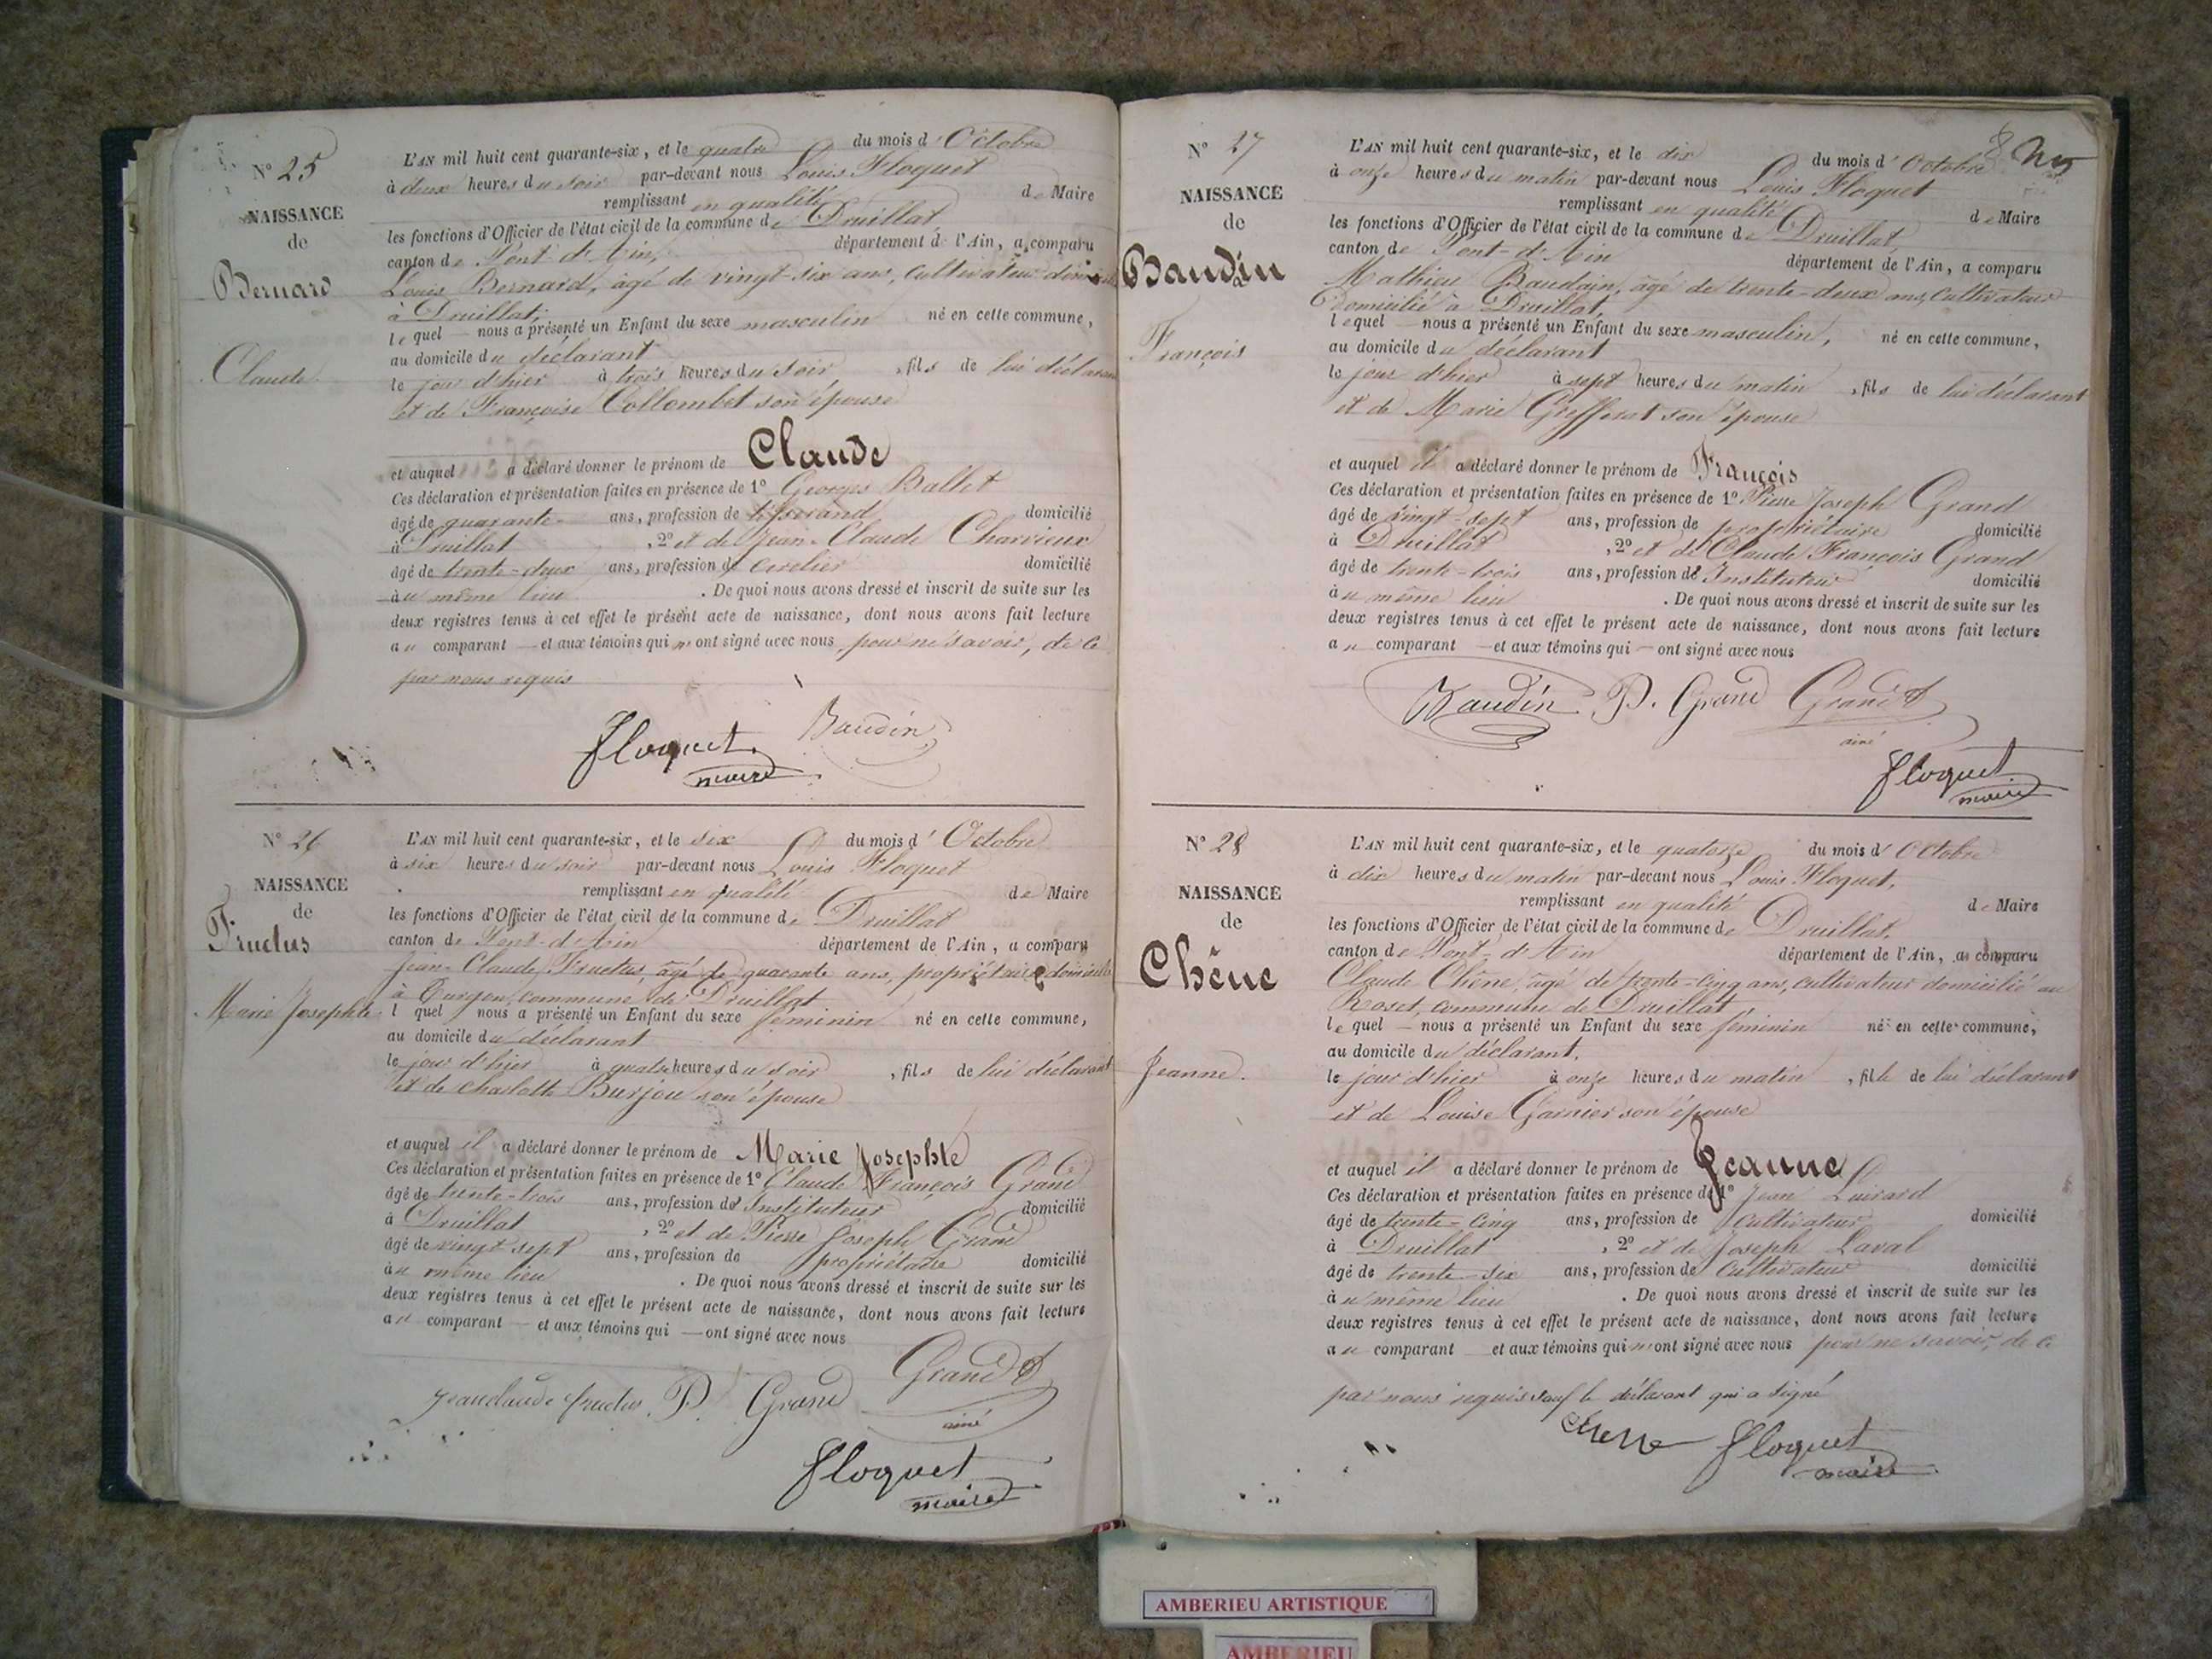 N° 25
NAISSANCE
de
Bernard
Claude
L'AN mil huit cent quarante-six, et le quatre du mois d'Octobre
à deux heures du soir par-devant nous Louis Floquet
remplissant en qualité de Maire
les fonctions d'Officier de l'état civil de la commune de Druillat,
canton de Pont-d'Ain, département de l'Ain, a comparu
Louis Bernard, âgé de vingt-six ans, cultivateur
à Druillat,
lequel nous a présenté un Enfant du sexe masculin né en cette commune,
au domicile du déclarant
le jour d'hier à trois heures du soir, fils de lui déclarant
et de Françoise Collombet son épouse
et auquel a déclaré donner le prénom de Claude
Ces déclaration et présentation faites en présence de 1° Georges Ballet
âgé de quarante ans, profession de tisserand domicilié
à Druillat, 2° et de Jean-Claude Charvieux
âgé de trente-deux ans, profession de domicilié
au même lieu. De quoi nous avons dressé et inscrit de suite sur les
deux registres tenus à cet effet le présent acte de naissance, dont nous avons fait lecture
au comparant et aux témoins qui n'ont signé avec nous pour ne savoir, de ce
par nous requis
Floquet Baudin
maire
N° 26
NAISSANCE
de
Fructus
Marie Josephte
L'AN mil huit cent quarante-six, et le six du mois d'Octobre
à six heures du soir par-devant nous Louis Floquet
remplissant en qualité de Maire
les fonctions d'Officier de l'état civil de la commune de Druillat
canton de Pont-d'Ain département de l'Ain, a comparu
Jean-Claude Fructus, âgé de quarante ans, propriétaire domicilié
à Turgon, commune de Druillat
l quel nous a présenté un Enfant du sexe féminin né en cette commune,
au domicile du déclarant
le jour d'hier à quatre heures du soir, fils de lui déclarant
et de Charlotte Burjou son épouse
et auquel il a déclaré donner le prénom de Marie Josephte
Ces déclaration et présentation faites en présence de 1° Claude François Grand
âgé de trente-trois ans, profession de Instituteur domicilié
à Druillat, 2° et de Pierre Joseph Grand
âgé de vingt sept ans, profession de propriétaire domicilié
au même lieu. De quoi nous avons dressé et inscrit de suite sur les
deux registres tenus à cet effet le présent acte de naissance, dont nous avons fait lecture
au comparant et aux témoins qui ont signé avec nous
Jeanclaude fructus P. Grand Grand
ainé
Floquet
maire
N° 27
NAISSANCE
de
Baudin
François
L'AN mil huit cent quarante-six, et le dix du mois d'Octobre
à onze heures du matin par-devant nous Louis Floquet
remplissant en qualité de Maire
les fonctions d'Officier de l'état civil de la commune de Druillat,
canton de Pont-d'Ain département de l'Ain, a comparu
Mathieu Baudin, âgé de trente-deux ans, cultivateur
domicilié à Druillat,
lequel nous a présenté un Enfant du sexe masculin, né en cette commune,
au domicile du déclarant
le jour d'hier à sept heures du matin, fils de lui déclarant
et de Marie Grefferat son épouse
et auquel il a déclaré donner le prénom de François
Ces déclaration et présentation faites en présence de 1° Pierre Joseph Grand
âgé de vingt-sept ans, profession de propriétaire domicilié
à Druillat, 2° et de Claude François Grand
âgé de trente-trois ans, profession de Instituteur domicilié
au même lieu. De quoi nous avons dressé et inscrit de suite sur les
deux registres tenus à cet effet le présent acte de naissance, dont nous avons fait lecture
au comparant et aux témoins qui ont signé avec nous
Baudin P. Grand Grand
ainé
Floquet
maire
N° 28
NAISSANCE
de
Chêne
Jeanne.
L'AN mil huit cent quarante-six, et le quatorze du mois d'Octobre
à dix heures du matin par-devant nous Louis Floquet,
remplissant en qualité de Maire
les fonctions d'Officier de l'état civil de la commune de Druillat,
canton de Pont-d'Ain département de l'Ain, a comparu
Claude Chêne, âgé de trente-cinq ans, cultivateur domicilié au
Roset, commune de Druillat,
lequel nous a présenté un Enfant du sexe féminin né en cette commune,
au domicile du déclarant,
le jour d'hier à onze heures du matin, fille de lui déclarant
et de Louise Garnier son épouse
et auquel il a déclaré donner le prénom de Jeanne
Ces déclaration et présentation faites en présence de 1° Jean Luirard
âgé de trente-cinq ans, profession de cultivateur domicilié
à Druillat, 2° et de Joseph Laval
âgé de trente-six ans, profession de Cultivateur domicilié
au même lieu. De quoi nous avons dressé et inscrit de suite sur les
deux registres tenus à cet effet le présent acte de naissance, dont nous avons fait lecture
au comparant et aux témoins qui n'ont signé avec nous pour ne savoir, de ce
par nous requis sauf le déclarant qui a signé
Chene Floquet
maire
AMBERIEU ARTISTIQUE
AMBERIEU